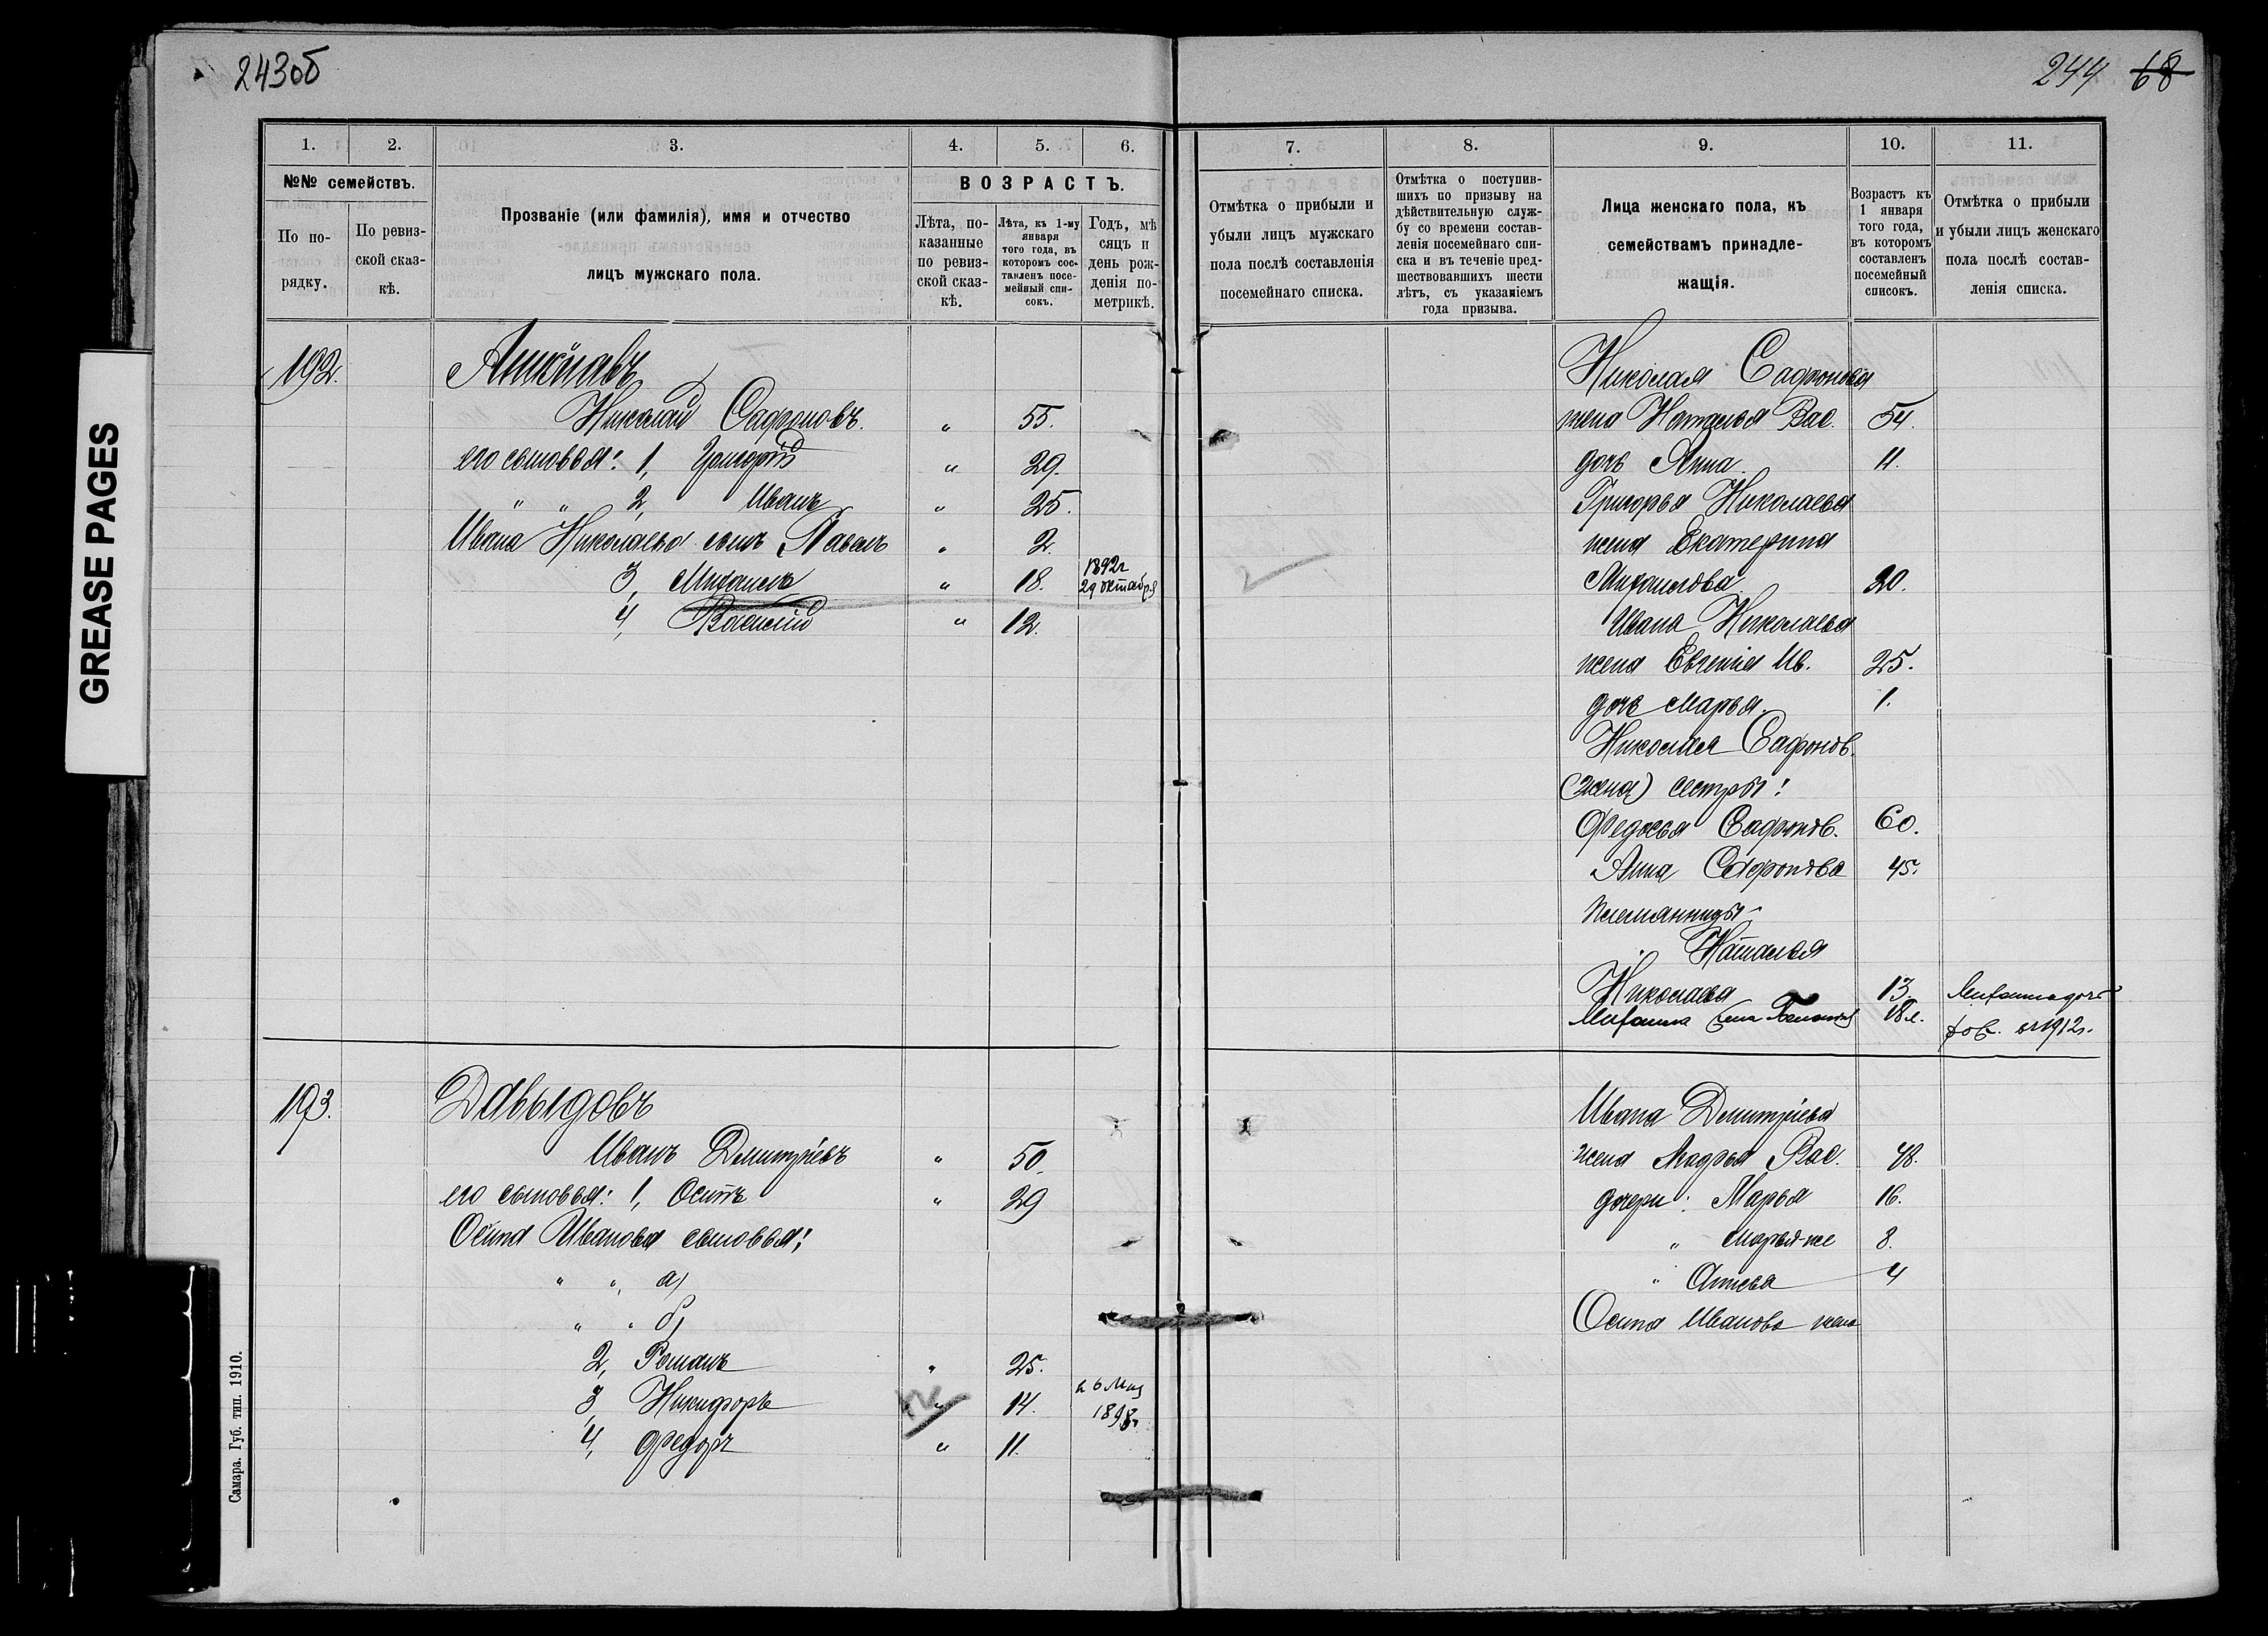 243об
244 68
GREASE PAGES
1.
2.
3.
4.
5.
6.
7.
8.
9.
10.
11.
№№ семействъ.
По по-
рядку.
По ревиз-
ской сказ-
кѣ.
Прозваніе (или фамилія), имя и отчество
лицъ мужскаго пола.
ВОЗРАСТЪ.
Лѣта, по-
казанные
по ревиз-
ской сказ-
кѣ.
Лѣта, къ 1-му
января
того года, въ
которомъ сос-
тавленъ посе-
мейный спи-
сокъ.
Годъ, мѣ
сяцъ и
день рож-
денія по-
метрикѣ.
Отмѣтка о прибыли и
убыли лицъ мужскаго
пола послѣ составленія
посемейнаго списка.
Отмѣтка о поступив-
шихъ по призыву на
дѣйствительную служ-
бу со времени состав-
ленія посемейнаго спи-
ска и въ теченіе пред-
шествовавшихъ шести
лѣтъ, съ указаніемъ
года призыва.
Лица женскаго пола, къ
семействамъ принадле-
жащія.
Возрастъ къ
1 января
того года,
въ которомъ
составленъ
посемейный
списокъ.
Отмѣтка о прибыли
и убыли лицъ женскаго
пола послѣ состав-
ленія списка.
192.
Николай Сафроновъ. " 55.
его сыновья: 1, Григорій " 29.
" " 2, Иванъ " 25.
Ивана Николаева сынъ Павелъ " 2.
3, Михаилъ " 18. 1892г
29 октября
4, Василій " 12.
Николая Сафронова
жена Наталья Вас. 54.
дочь Анна 11.
Григорья Николаева
жена Екатерина
Михаилова 30.
Ивана Николаева
жена Евгенія Ив. 25.
дочь Марья. 1.
Николая Сафронов.
(жена) сестры:
Федосья Сафронов. 60.
Анна Сафронова 45.
племянницы
Наталья
Николаева 13.
Михаила 18л.
1912г.
193.
Давыдовъ
Иванъ Дмитріевъ " 50.
его сыновья: 1, Осипъ " 29
Осипа Иванова сыновья:
" " а)
" " б)
2, Романъ " 25.
3, Никифоръ 14. 6 Мая
1898г
4, Федоръ " 11.
Ивана Дмитріева
жена Вас. 48.
дочери: Марья 16.
" Марья-же 8.
" 4
Осипа Иванова жена
Самара. Губ. тип. 1910.